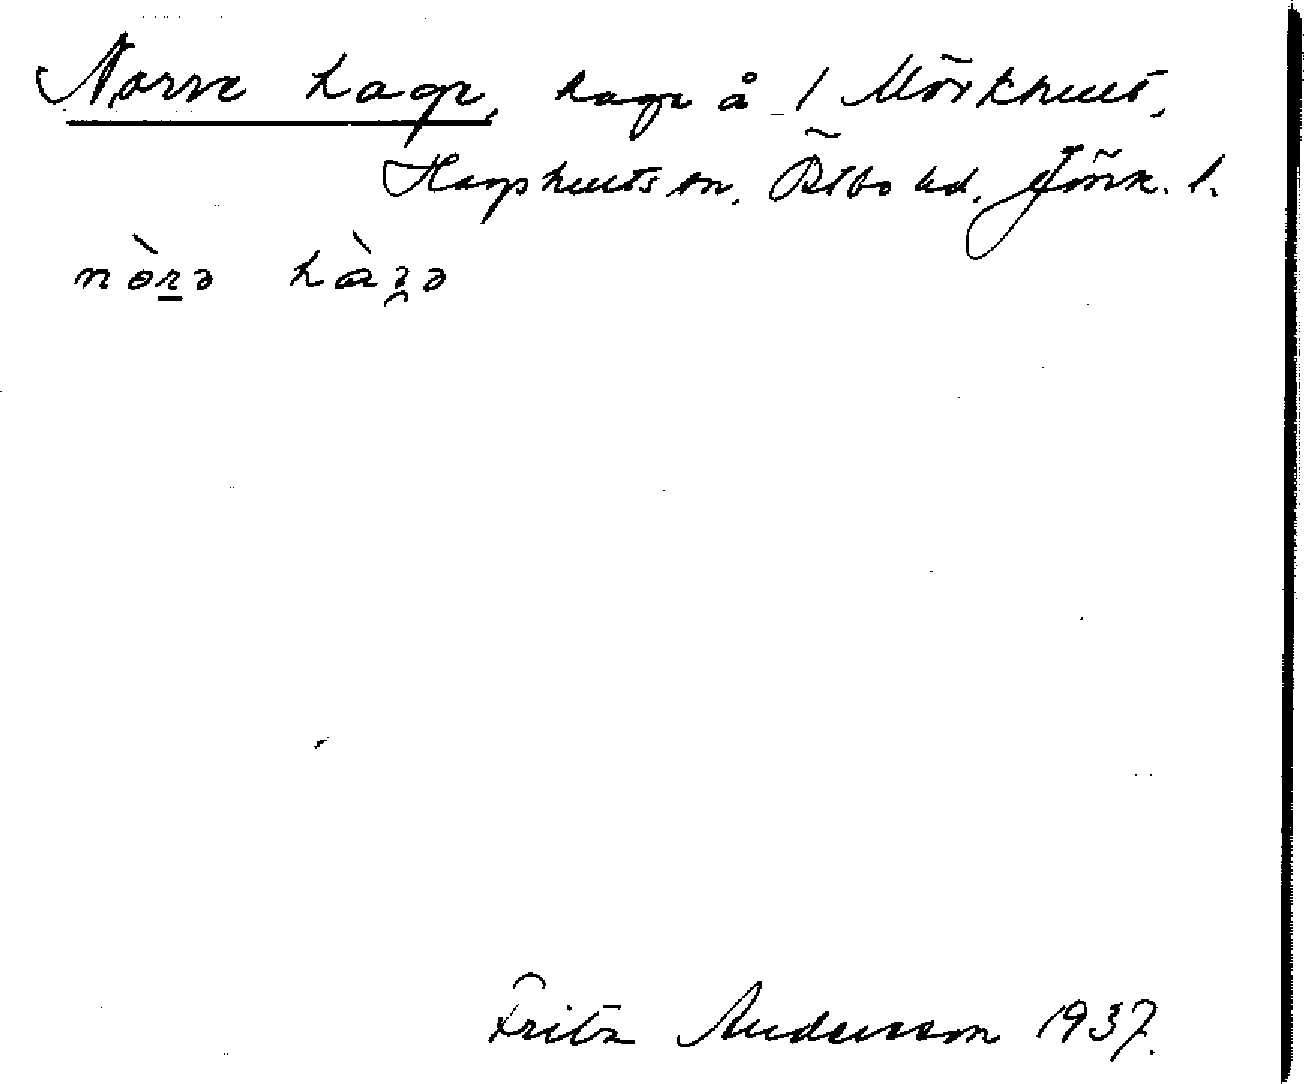 Norre hage, hage å 1 Mörkhult,
Hagshults sn, Östbo hd, Jönk. l.
nòrə hàgə
Fritz Andersson 1937.